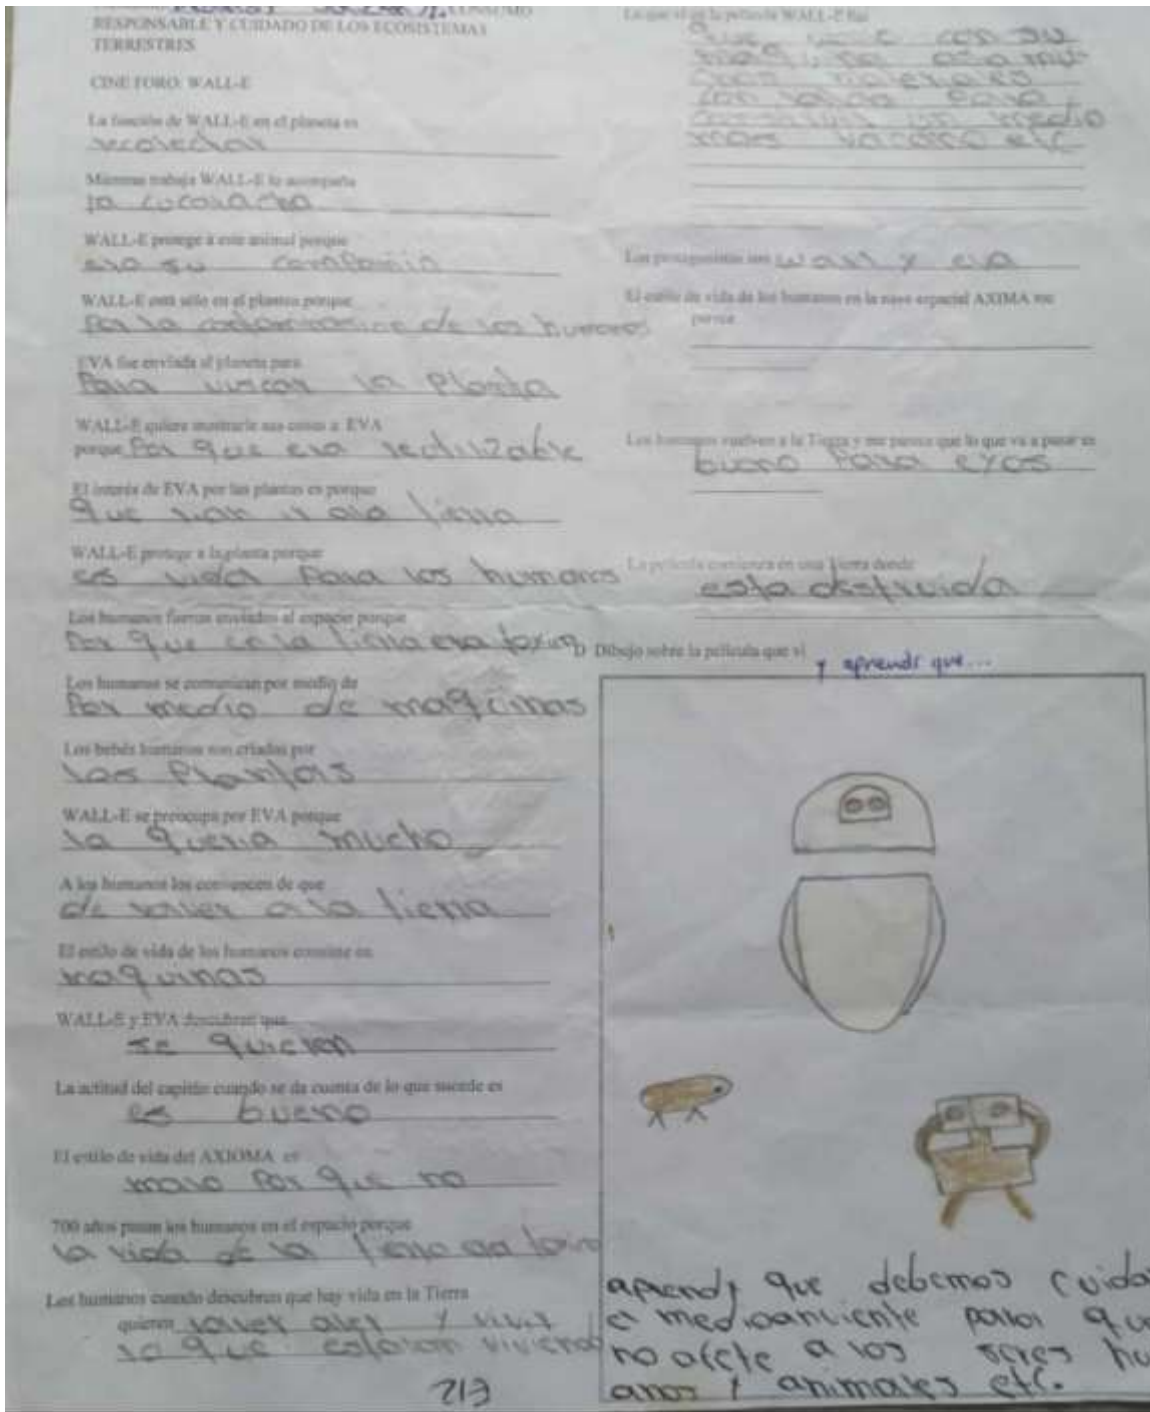 CONSUMO
RESPONSABLE Y CUIDADO DE LOS ECOSISTEMAS
TERRESTRES
CINE FORO: WALL-E
La función de WALL-E en el planeta es
recolectar
Mientras trabaja WALL-E lo acompaña
la cucaracha
WALL-E protege a este animal porque
era su compañia
WALL-E está sólo en el planeta porque
Por la de los humanos
EVA fue enviada al planeta para
Para vuscar la Planta
WALL-E quiere mostrarle sus cosas a EVA
porque Por que era reutilizable
El interés de EVA por las plantas es porque
que a la tierra
WALL-E protege a la planta porque
es vida Para los humanos
Los humanos fueron enviados al espacio porque
Por que en la tierra era toxico
Los humanos se comunican por medio de
Por medio de maquinas
Los bebés humanos son criados por
las Plantas
WALL-E se preocupa por EVA porque
la queria mucho
A los humanos los convencen de que
de volver a la tierra
El estilo de vida de los humanos consiste en
maquinas
WALL-E y EVA descubren que
se quieren
La actitud del capitán cuando se da cuenta de lo que sucede es
es bueno
El estilo de vida del AXIOMA es
malo Por que no
700 años pasan los humanos en el espacio porque
la vida de la
Los humanos cuando descubren que hay vida en la Tierra
quieren y vivir
lo que estaban viviendo
Lo que vi en la película WALL-E fue
que con su
con
un medio
mas etc
Los protagonistas son wall y eva
El estilo de vida de los humanos en la nave espacial AXIMA me
parece
Los humanos vuelven a la Tierra y me parece que lo que va a pasar es
bueno Para eyos
La película comienza en una Tierra donde
esta destruida
Dibujo sobre la película que vi
y aprendí que...
aprendi que debemos cuida
el medioanviente para que
no afecte a los seres hu
anos y animales etc.